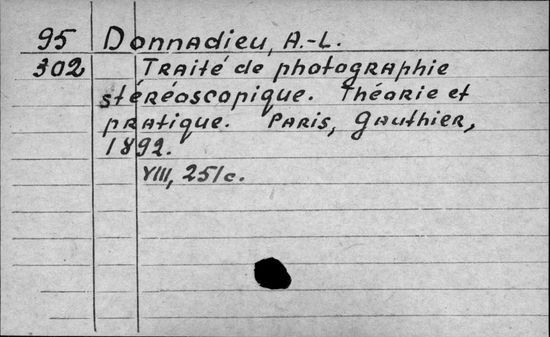 95 Donnadieu, A.-L.
302 Traité de photographie
stéréoscopique. Théorie et
pratique. Paris, Gauthier,
1892.
VIII, 251c.